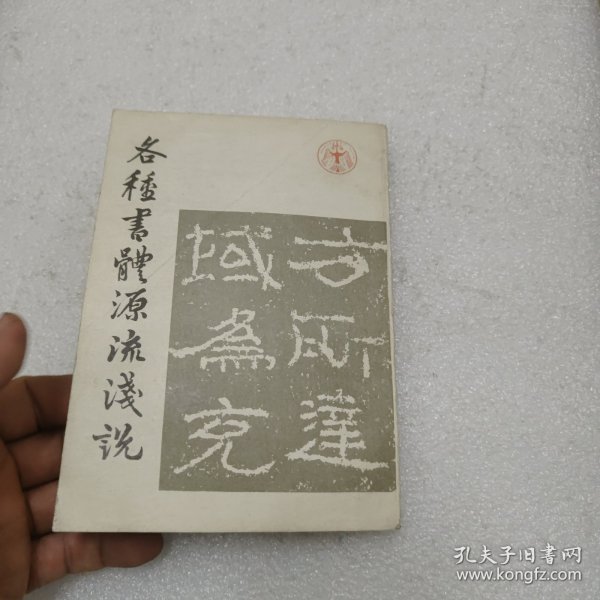 各種書體源流淺說
方所達
域為充
孔夫子旧书网
www.kongfz.com